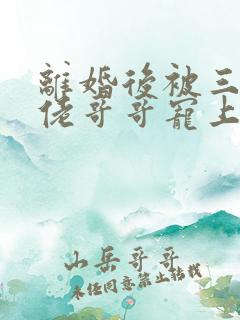 離婚後被三
佬哥哥寵上
山岳哥哥
未經同意禁止轉載